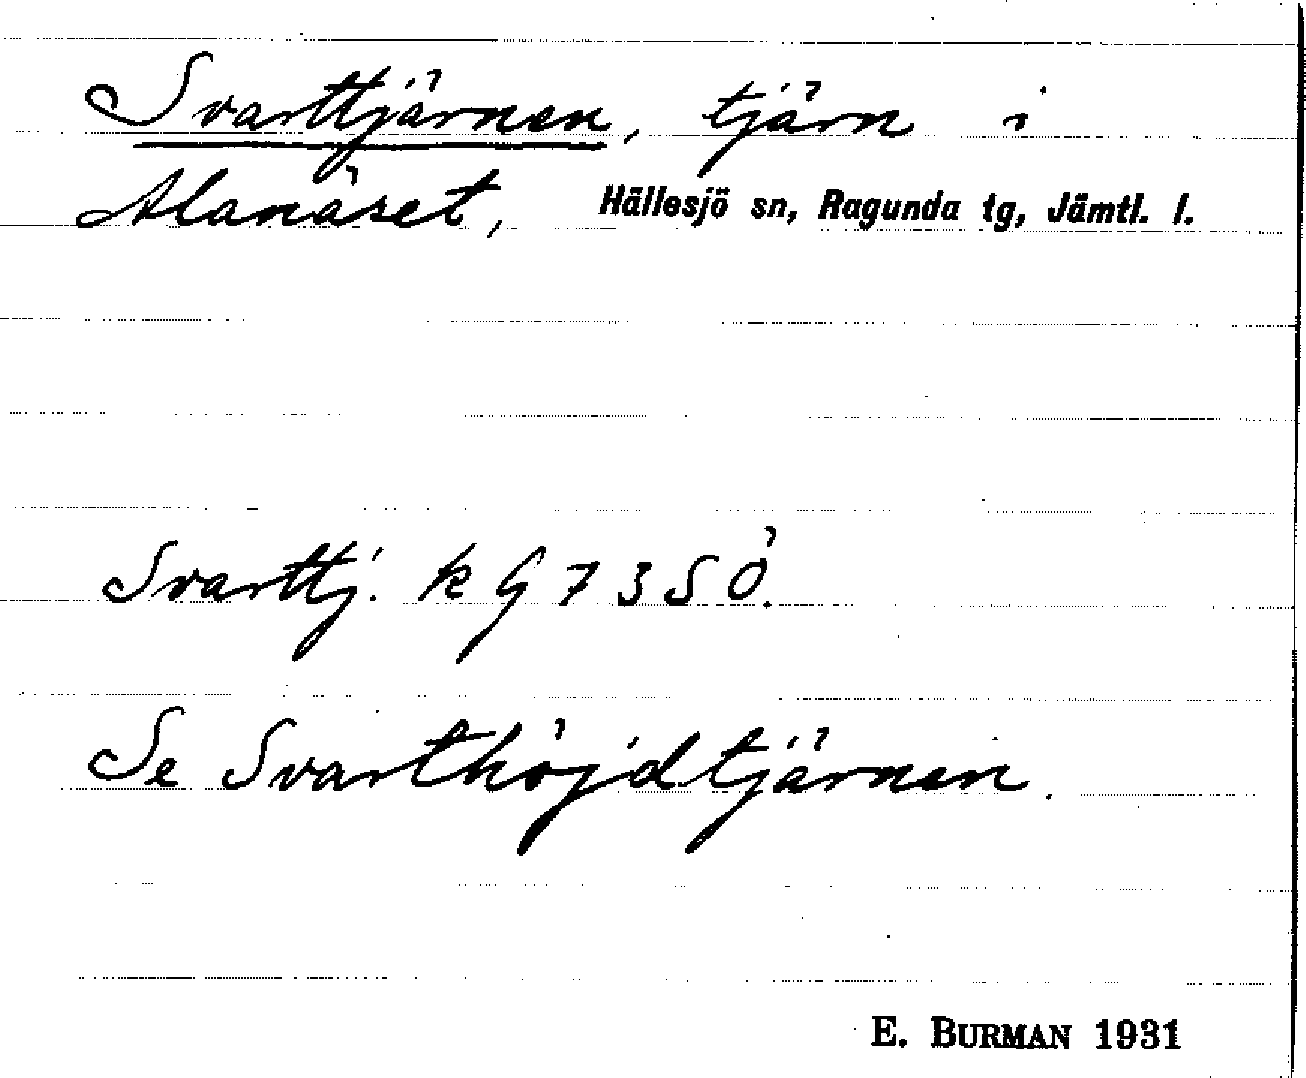 Svarttjärnen, tjärn i
Alanäset, Hällesjö sn, Ragunda tg, Jämtl. l.
Svarttj. k G 73 S Ö.
Se Svarthöjdtjärnen.
E. BURMAN 1931